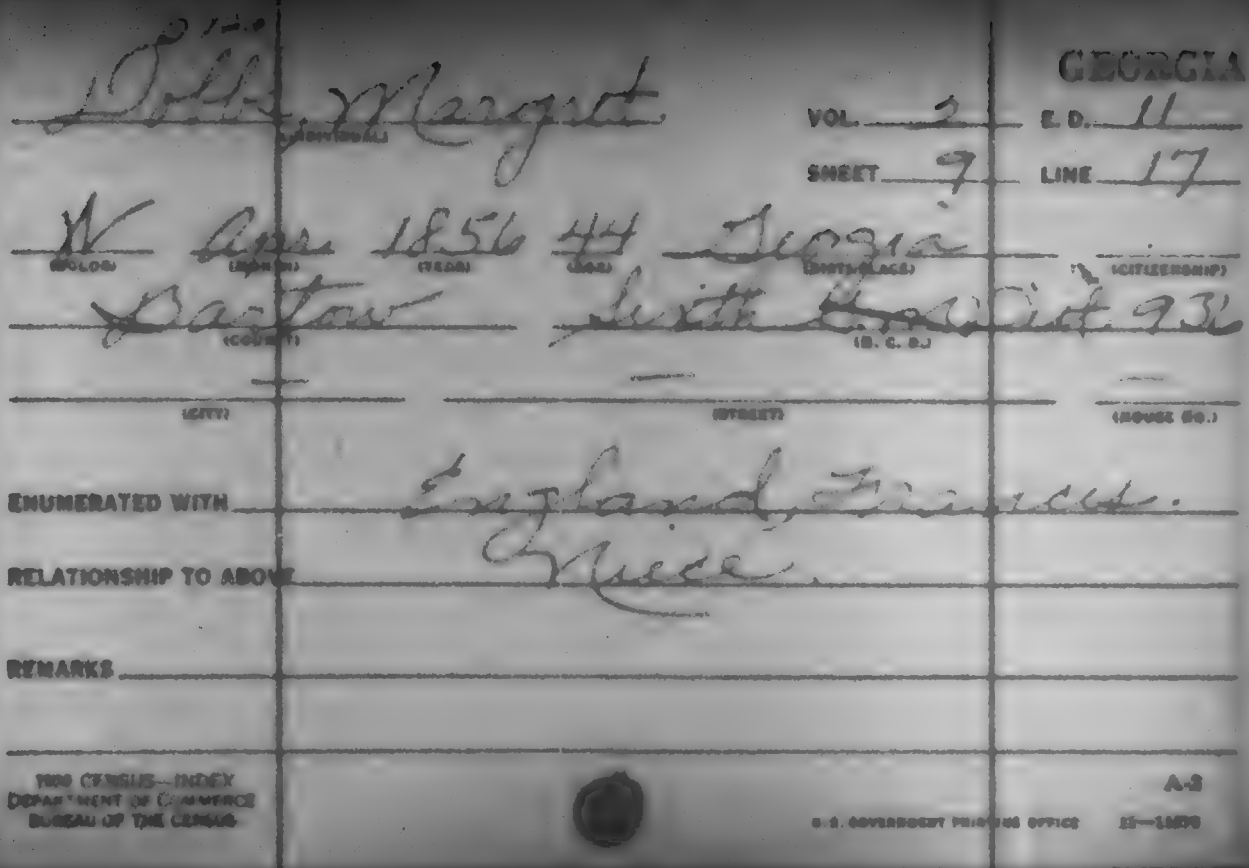 GEORGIA
Dobbs, Margret
(INDIVIDUAL)
VOL. 2 E. D. 11
SHEET 9 LINE 17
W Apr. 1856 44 Georgia
(COLOR) (MONTH) (YEAR) (AGE) (BIRTHPLACE) (CITIZENSHIP)
Bartow Sixth Dist. 936
(COUNTY) (M. C. D.)
— — —
(CITY) (STREET) (HOUSE NO.)
ENUMERATED WITH England, Frances.
RELATIONSHIP TO ABOVE Niece.
REMARKS
1900 CENSUS—INDEX
DEPARTMENT OF COMMERCE
BUREAU OF THE CENSUS
A-3
U. S. GOVERNMENT PRINTING OFFICE